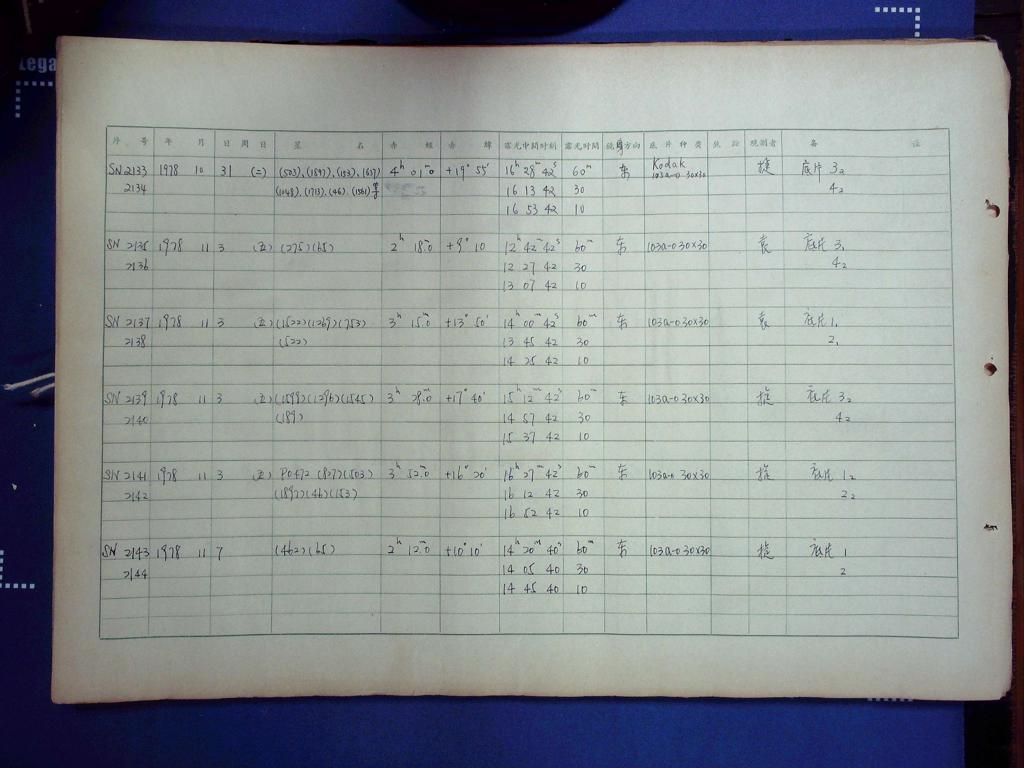 Lega
序 号 年 月 日 周 日 星 名 赤 经 赤 纬 露光中间时刻 露光时间 镜身方向 底 片 种 类 焦 距 观测者 备 注
SN 2133 1978 10 31 (二) (503)、(1897)、(153)、(1637) 4ʰ 01ᵐ0 +19° 55′ 16ʰ 28ᵐ 42ˢ 60ᵐ 东 Kodak 103a-0 30x30 底片 3₂
2134 (1048)、(1713)、(46)、(1561)等 16 13 42 30 4₂
16 53 42 10
SN 2135 1978 11 3 (五) (275)(65) 2ʰ 18ᵐ0 +9° 10 12ʰ 42ᵐ 42ˢ 60ᵐ 东 103a-0 30x30 袁 底片 3₁
2136 12 27 42 30 4₂
13 07 42 10
SN 2137 1978 11 3 (五) (1522)(1269)(753) 3ʰ 15ᵐ0 +13° 50′ 14ʰ 00ᵐ 42ˢ 60ᵐ 东 103a-0 30x30 袁 底片 1₁
2138 (522) 13 45 42 30 2₁
14 25 42 10
SN 2139 1978 11 3 (五) (1599)(1296)(1545) 3ʰ 28ᵐ0 +17° 40′ 15ʰ 12ᵐ 42ˢ 60ᵐ 东 103a-0 30x30 底片 3₂
2140 (189) 14 57 42 30 4₂
15 37 42 10
SN 2141 1978 11 3 (五) P0472 (827)(503) 3ʰ 52ᵐ0 +16° 20′ 16ʰ 27ᵐ 42ˢ 60ᵐ 东 103a-0 30x30 底片 1₂
2142 (1897)(46)(153) 16 12 42 30 2₂
16 52 42 10
SN 2143 1978 11 7 (462)(65) 2ʰ 12ᵐ0 +10° 10′ 14ʰ 20ᵐ 40ˢ 60ᵐ 东 103a-0 30x30 底片 1
2144 14 05 40 30 2
14 45 40 10